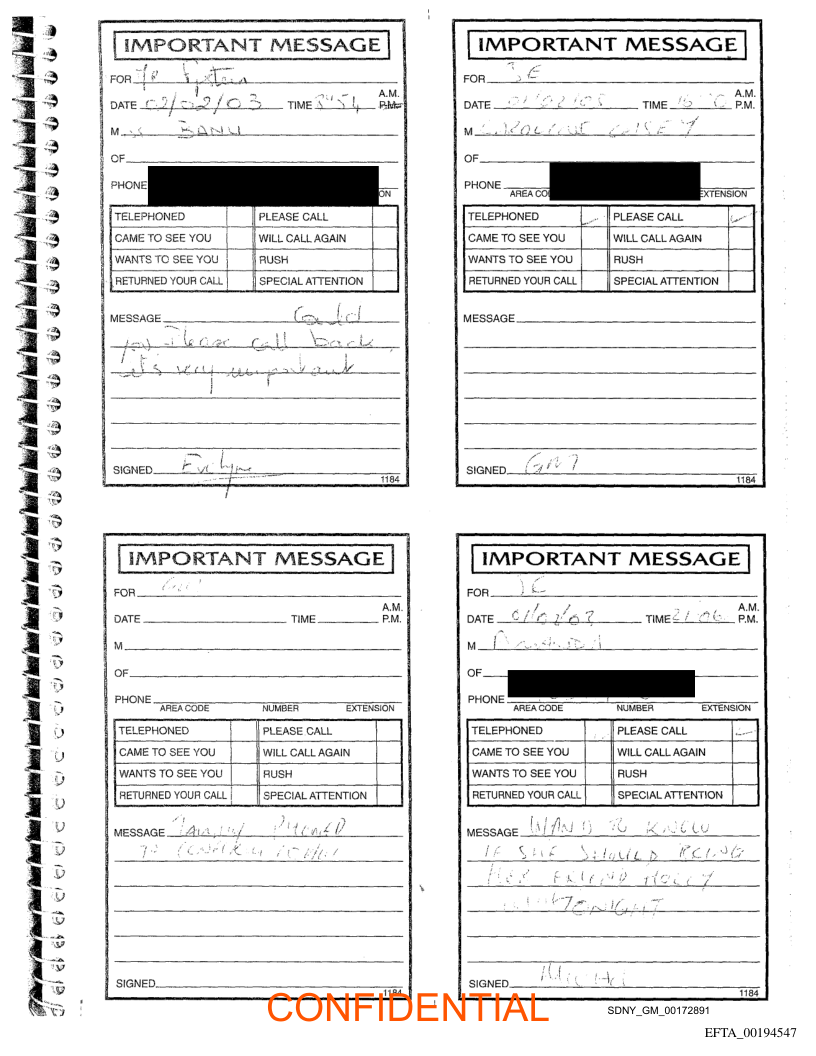 IMPORTANT MESSAGE
FOR Mr Epstein
DATE 02/02/03 TIME 8:54 A.M. P.M.
M ss BANU
OF
PHONE
ON
TELEPHONED PLEASE CALL
CAME TO SEE YOU WILL CALL AGAIN
WANTS TO SEE YOU RUSH
RETURNED YOUR CALL SPECIAL ATTENTION
MESSAGE Could
you Please call back,
it's very important
SIGNED Evelyne
1184
IMPORTANT MESSAGE
FOR JE
DATE TIME A.M. P.M.
M
OF
PHONE
AREA CO EXTENSION
TELEPHONED PLEASE CALL
CAME TO SEE YOU WILL CALL AGAIN
WANTS TO SEE YOU RUSH
RETURNED YOUR CALL SPECIAL ATTENTION
MESSAGE
SIGNED
1184
IMPORTANT MESSAGE
FOR
DATE TIME A.M. P.M.
M
OF
PHONE
AREA CODE NUMBER EXTENSION
TELEPHONED PLEASE CALL
CAME TO SEE YOU WILL CALL AGAIN
WANTS TO SEE YOU RUSH
RETURNED YOUR CALL SPECIAL ATTENTION
MESSAGE PHONED
SIGNED
1184
IMPORTANT MESSAGE
FOR JE
DATE 01/02/03 TIME 21 06 A.M. P.M.
M
OF
PHONE
AREA CODE NUMBER EXTENSION
TELEPHONED PLEASE CALL
CAME TO SEE YOU WILL CALL AGAIN
WANTS TO SEE YOU RUSH
RETURNED YOUR CALL SPECIAL ATTENTION
MESSAGE TO KNOW
IF SHE SHOULD BRING
HER FRIEND HOLLY
TONIGHT
SIGNED
1184
CONFIDENTIAL
SDNY_GM_00172891
EFTA_00194547